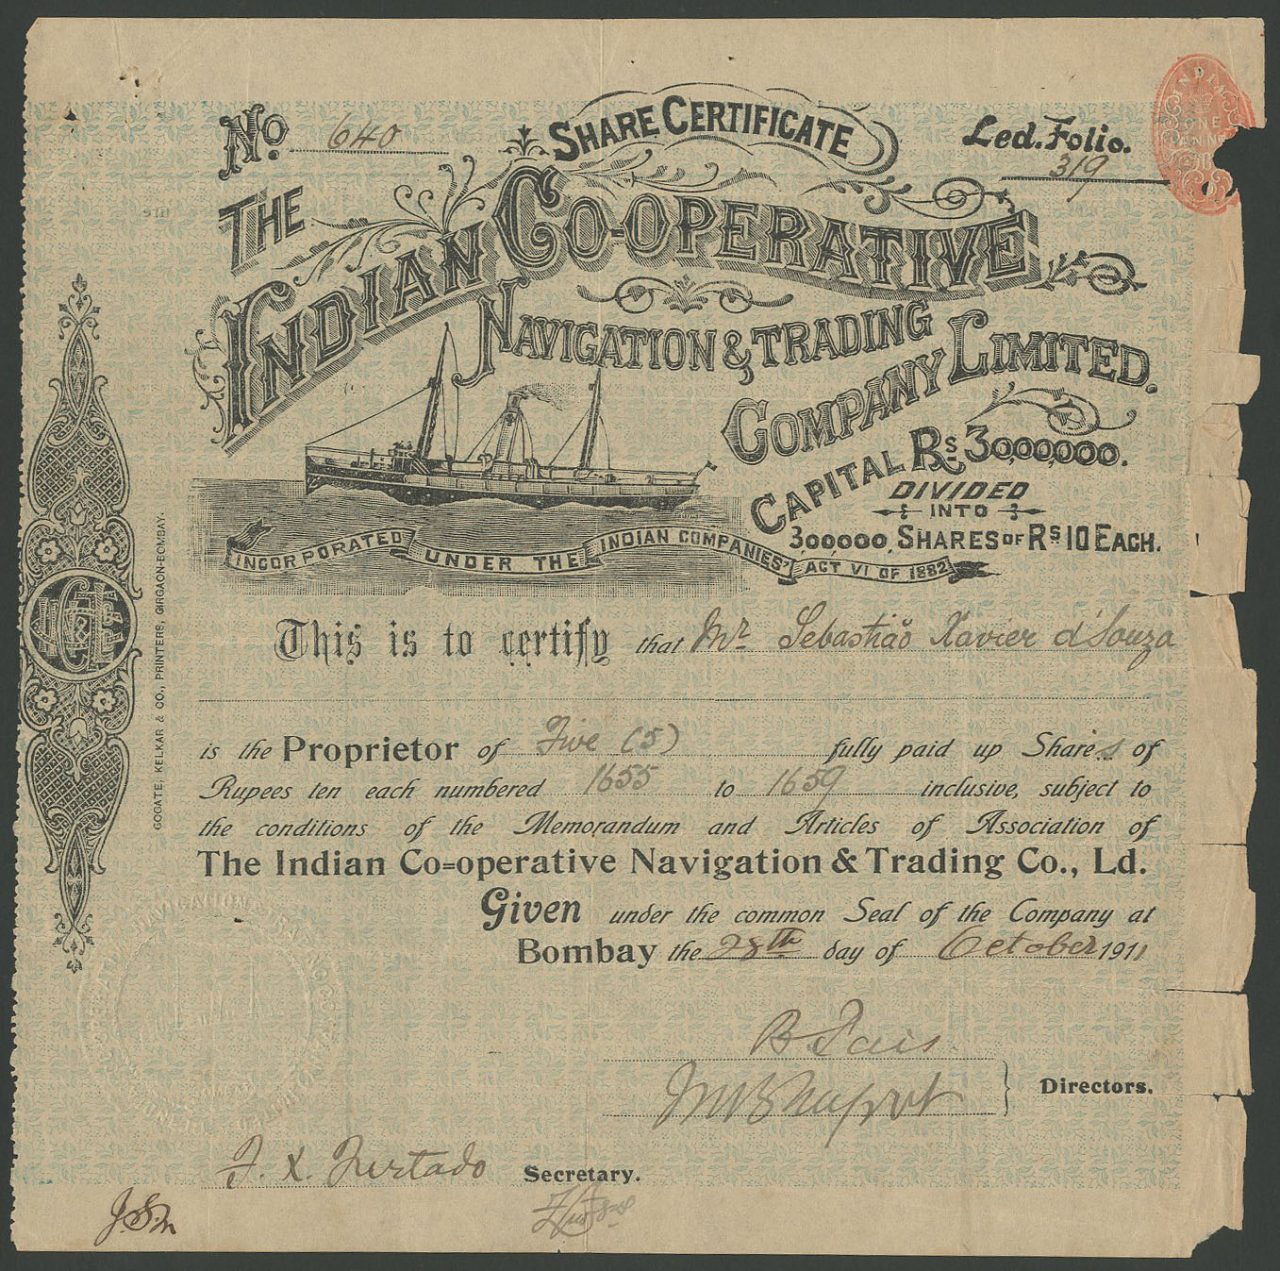 No. 640
SHARE CERTIFICATE
Led. Folio.
319
INDIA
ONE
ANNA
THE
INDIAN CO-OPERATIVE
NAVIGATION & TRADING
COMPANY LIMITED.
CAPITAL Rs 3,000,000.
DIVIDED
INTO
300,000, SHARES OF Rs 10 EACH.
INCORPORATED UNDER THE INDIAN COMPANIES' ACT VI OF 1882
This is to certify that Mr. Sebastião Xavier d'Souza
is the Proprietor of Five (5) fully paid up Shares of
Rupees ten each numbered 1655 to 1659 inclusive, subject to
the conditions of the Memorandum and Articles of Association of
The Indian Co=operative Navigation & Trading Co., Ld.
Given under the common Seal of the Company at
Bombay the 28th day of October 1911
B Pais
Directors.
F. X. Furtado Secretary.
GOGATE, KELKAR & CO., PRINTERS, GIRGAON-BOMBAY.